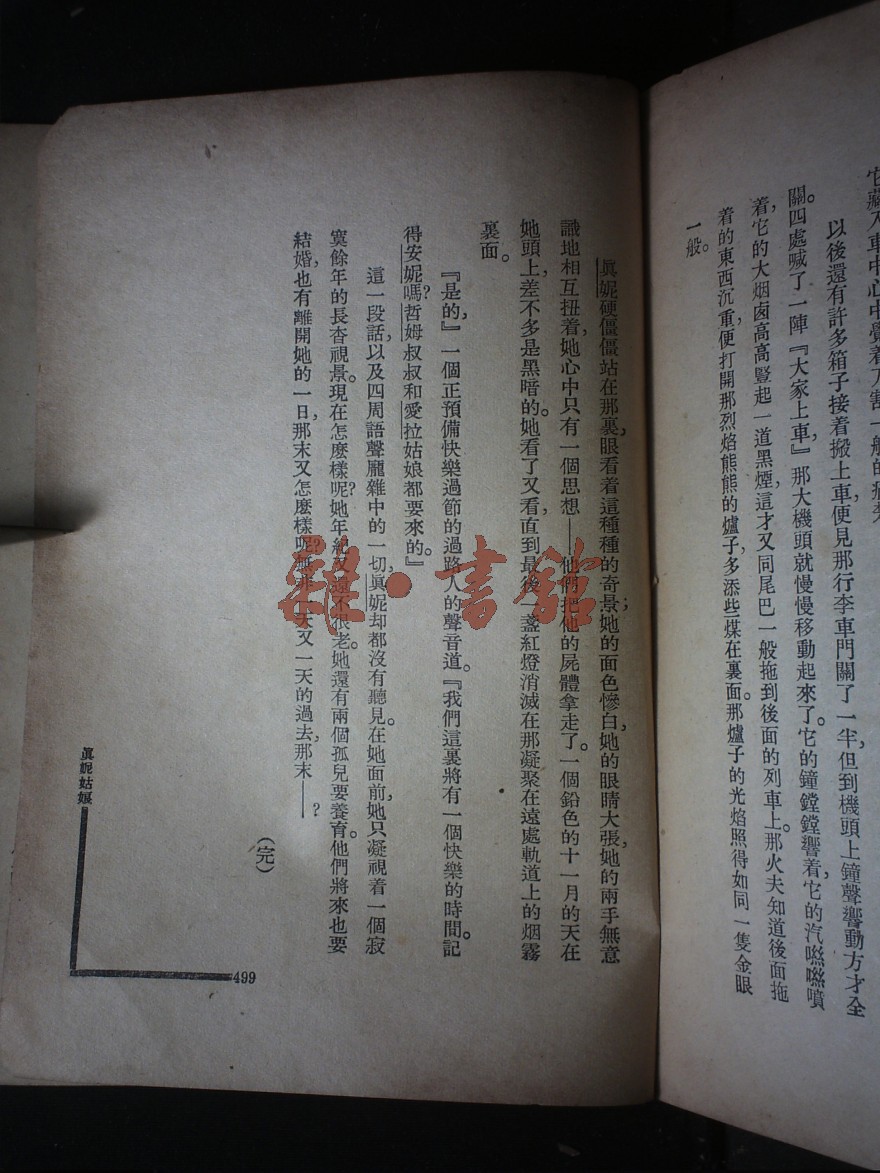 以後還有許多箱子接着搬上車，便見那行李車門關了一半，但到機頭上鐘聲響動，方才全
關。四處喊了一陣『大家上車』那大機頭就慢慢移動起來了。它的鐘鏜鏜響着，它的汽嘶嘶噴
着，它的大烟卤高高豎起一道黑煙，這才又同尾巴一般拖到後面的列車上。那火夫知道後面拖
着的東西沉重，便打開那烈焰熊熊的爐子，多添些煤在裏面。那爐子的光焰照得如同一隻金眼
一般。
眞妮硬僵僵站在那裏，眼看着這種種的奇景；她的面色慘白，她的眼睛大張，她的兩手無意
識地相互扭着，她心中只有一個思想——他們把他的屍體拿走了。一個鉛色的十一月的天在
她頭上，差不多是黑暗的。她看了又看，直到最後一盞紅燈消滅在那凝聚在遠處軌道上的烟霧
裏面。
『是的，』一個正預備快樂過節的過路人的聲音道。『我們這裏將有一個快樂的時間。記
得安妮嗎？哲姆叔叔和愛拉姑娘都要來的。』
這一段話，以及四周語聲龐雜中的一切，眞妮却都沒有聽見。在她面前，她只凝視着一個寂
寞餘年的長杳視景。現在怎麼樣呢？她年紀又還不很老。她還有兩個孤兒要養育。他們將來也要
結婚，也有離開她的一日，那末又怎麼樣呢？無非一天又一天的過去，那末——？
（完）
眞妮姑娘
499
雜·書館